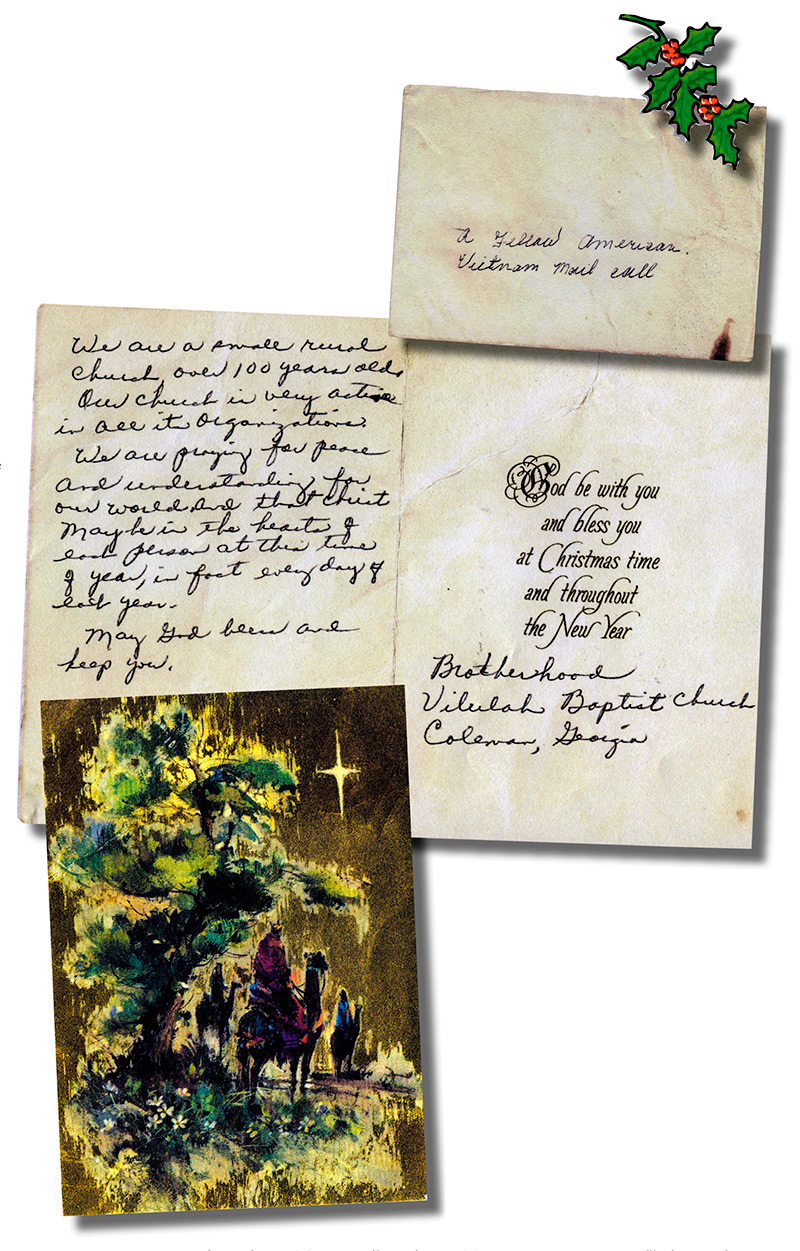 A Fellow American.
Vietnam Mail call
We are a small rural
church, over 100 years old.
Our church is very active
in all its organizations.
We are praying for peace
and understanding for
our world, and that Christ
may be in the hearts of
each person at this time
of year, in fact every day of
each year.
May God bless and
keep you.
God be with you
and bless you
at Christmas time
and throughout
the New Year
Brotherhood
Vilulah Baptist Church
Coleman, Georgia